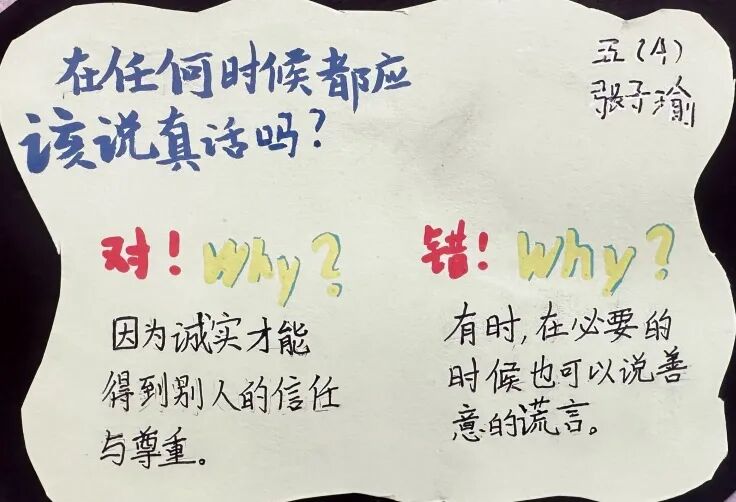 在任何时候都应
该说真话吗？
五(4)
张子瑜
对！Why？
因为诚实才能
得到别人的信任
与尊重。
错！Why？
有时，在必要的
时候也可以说善
意的谎言。